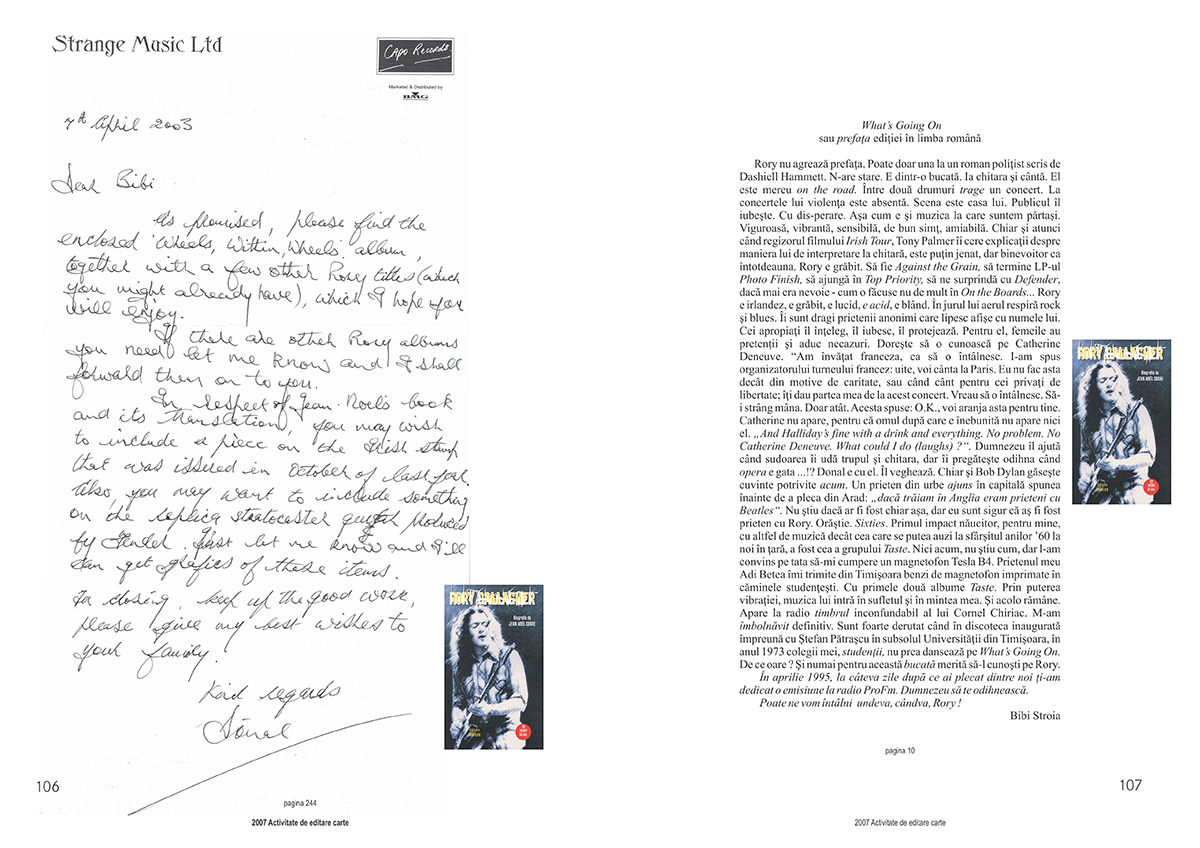 Strange Music Ltd
Capo Records
Marketed & Distributed by
BMG
7th April 2003
Dear Bibi
As promised, please find the
enclosed 'Wheels, Within, Wheels' album,
together with a few other Rory titles (which
you might already have), which I hope you
will enjoy.
If there are other Rory albums
you need let me know and I shall
forward them on to you.
In respect of Jean-Noel's book
and its translation, you may wish
to include a piece on the Irish stamp
that was issued in October of last year.
Also, you may want to include something
on the replica stratocaster guitar produced
by Fender. Just let me know and I'll
can get grafics of these items.
In closing, keep up the good work,
please give my best wishes to
your family.
Kind regards
Dónal
RORY GALLAGHER
Biografie de
JEAN-NOEL COGHE
106
pagina 244
2007 Activitate de editare carte
What's Going On
sau prefaţa ediţiei în limba română
Rory nu agrează prefaţa. Poate doar una la un roman poliţist scris de
Dashiell Hammett. N-are stare. E dintr-o bucată. Ia chitara şi cântă. El
este mereu on the road. Între două drumuri trage un concert. La
concertele lui violenţa este absentă. Scena este casa lui. Publicul îl
iubeşte. Cu dis-perare. Aşa cum e şi muzica la care suntem părtaşi.
Viguroasă, vibrantă, sensibilă, de bun simţ, amiabilă. Chiar şi atunci
când regizorul filmului Irish Tour, Tony Palmer îi cere explicaţii despre
maniera lui de interpretare la chitară, este puţin jenat, dar binevoitor ca
întotdeauna. Rory e grăbit. Să fie Against the Grain, să termine LP-ul
Photo Finish, să ajungă în Top Priority, să ne surprindă cu Defender,
dacă mai era nevoie - cum o făcuse nu de mult în On the Boards... Rory
e irlandez, e grăbit, e lucid, e acid, e blând. În jurul lui aerul respiră rock
şi blues. Îi sunt dragi prietenii anonimi care lipesc afişe cu numele lui.
Cei apropiaţi îl înţeleg, îl iubesc, îl protejează. Pentru el, femeile au
pretenţii şi aduc necazuri. Doreşte să o cunoască pe Catherine
Deneuve. “Am învăţat franceza, ca să o întâlnesc. I-am spus
organizatorului turneului francez: uite, voi cânta la Paris. Eu nu fac asta
decât din motive de caritate, sau când cânt pentru cei privaţi de
libertate; îţi dau partea mea de la acest concert. Vreau să o întâlnesc. Să-
i strâng mâna. Doar atât. Acesta spuse: O.K., voi aranja asta pentru tine.
Catherine nu apare, pentru că omul după care e înebunită nu apare nici
el. „And Halliday's fine with a drink and everything. No problem. No
Catherine Deneuve. What could I do (laughs) ?“. Dumnezeu îl ajută
când sudoarea îi udă trupul şi chitara, dar îi pregăteşte odihna când
opera e gata ...!? Donal e cu el. Îl veghează. Chiar şi Bob Dylan găseşte
cuvinte potrivite acum. Un prieten din urbe ajuns în capitală spunea
înainte de a pleca din Arad: „dacă trăiam în Anglia eram prieteni cu
Beatles“. Nu ştiu dacă ar fi fost chiar aşa, dar eu sunt sigur că aş fi fost
prieten cu Rory. Orăştie. Sixties. Primul impact năucitor, pentru mine,
cu altfel de muzică decât cea care se putea auzi la sfârşitul anilor ’60 la
noi în ţară, a fost cea a grupului Taste. Nici acum, nu ştiu cum, dar l-am
convins pe tata să-mi cumpere un magnetofon Tesla B4. Prietenul meu
Adi Betea îmi trimite din Timişoara benzi de magnetofon imprimate în
căminele studenţeşti. Cu primele două albume Taste. Prin puterea
vibraţiei, muzica lui intră în sufletul şi în mintea mea. Şi acolo rămâne.
Apare la radio timbrul inconfundabil al lui Cornel Chiriac. M-am
îmbolnăvit definitiv. Sunt foarte derutat când în discoteca inaugurată
împreună cu Ştefan Pătraşcu în subsolul Universităţii din Timişoara, în
anul 1973 colegii mei, studenţii, nu prea dansează pe What's Going On.
De ce oare ? Şi numai pentru această bucată merită să-l cunoşti pe Rory.
În aprilie 1995, la câteva zile după ce ai plecat dintre noi ţi-am
dedicat o emisiune la radio ProFm. Dumnezeu să te odihnească.
Poate ne vom întâlni undeva, cândva, Rory !
Bibi Stroia
RORY GALLAGHER
Biografie de
JEAN-NOEL COGHE
pagina 10
107
2007 Activitate de editare carte